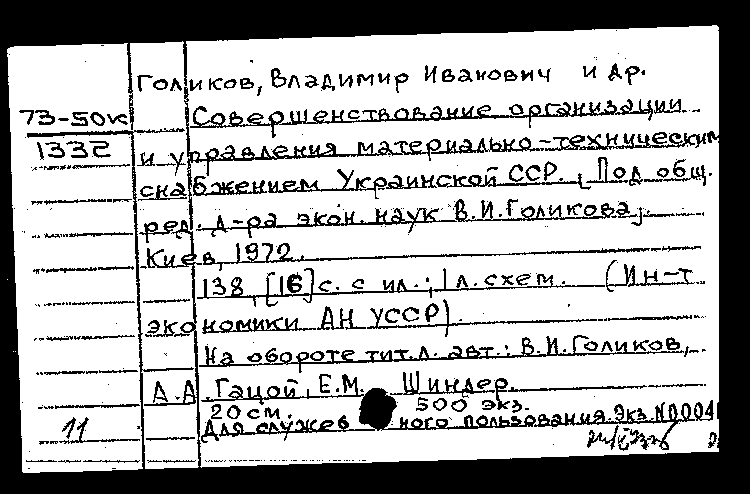 Голиков, Владимир Иванович и др.
73-50к Совершенствование организации
1332 и управления материально-техническим
снабжением Украинской ССР. [Под общ.
ред. д-ра экон. наук В.И.Голикова].
Киев, 1972.
138, [16] с. с ил.; 1 л. схем. (Ин-т
экономики АН УССР).
На обороте тит.л. авт.: В.И.Голиков,
А.А.Гацой, Е.М. Шиндер.
20 см. 500 экз.
11 Для служебного пользования. Экз. N0004